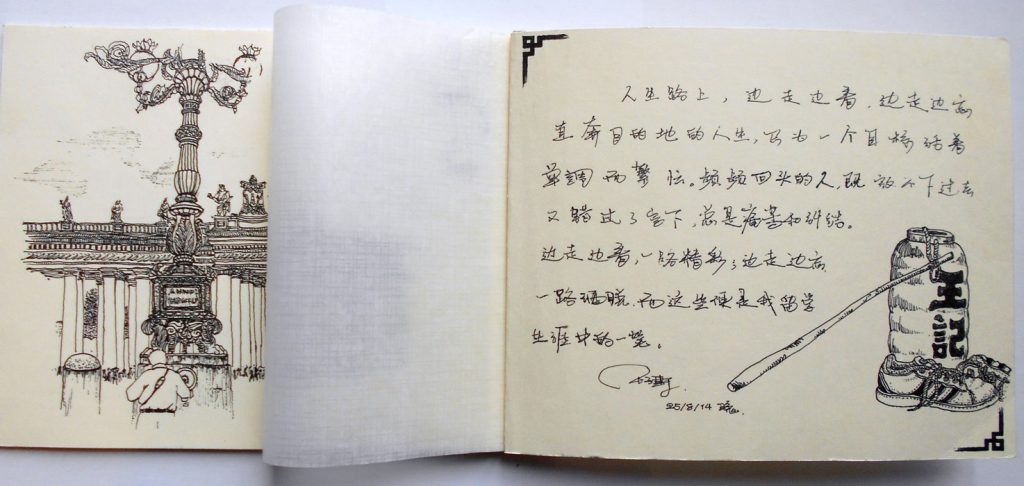 人生路上，边走边看，边走边忘
直奔目的地的人生，只为一个目标活着
单调而繁忙。频频回头的人，既放不下过去
又错过了当下，总是痛苦和纠结。
边走边看，一路精彩；边走边忘
一路洒脱，而这些便是我留学
生涯中的一览。
25/8/14